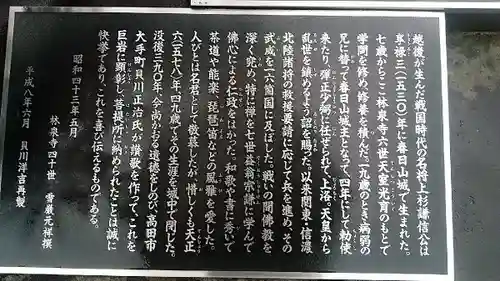 越後が生んだ戦国時代の名将上杉謙信公は
享禄三(一五三〇)年に春日山城で生まれた。
七歳からここ林泉寺六世天室光育のもとで
学問を修め、修業を積んだ。十九歳のとき病弱の
兄に替って春日山城主となって、四年にして勅使
来たり、弾正少弼に任ぜられて、上洛。天皇から
乱世を鎮めるよう詔を賜った。以来関東・信濃
北陸諸将の救援要請に応じて兵を進め、その
武威を一六箇国に及ぼした。戦いの間佛教を
深く究め、特に禅を七世益翁宗謙に学んで
佛心による仁政をはかった。和歌や書に秀いて
茶道や能楽、琵琶笛などの風雅を愛した。
人びとは名君として敬慕したが、惜しくも天正
六(一五七八)年四九歳でその生涯を城中で閉じた。
没後三九〇年、今高かおる道徳をしのび、高田市
大手町貝川正治氏が讃歌を作って、これを
巨岩に顕彰し、菩提所に納められたことは誠に
快挙であり、これを喜び伝えるものである。
昭和四十三年五月
林泉寺四十世 雪巌元祥撰
平成八年六月 貝川洋吉再製